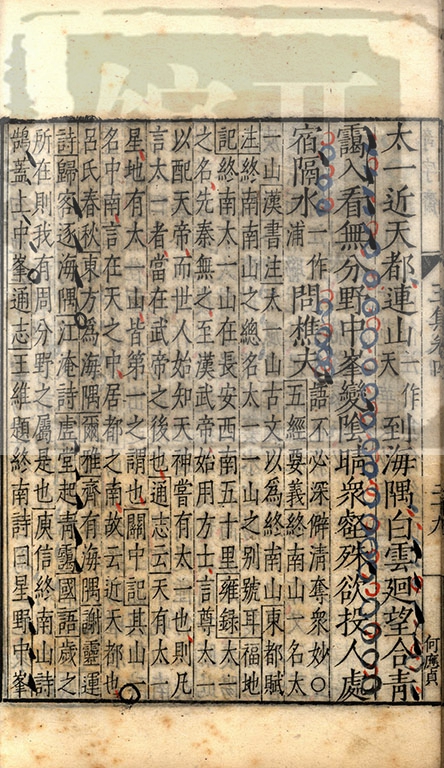 太一近天都連山一作天到海隅白雲廻望合青
靄入看無分野中峯變陰晴衆壑殊欲投人處
宿隔水一作浦問樵夫語不必深僻清奪衆妙○
五經要義終南山一名太
一山漢書注太一山古文以爲終南山東都賦
注終南南山之總名太一一山之別號耳福地
記終南太一山在長安西南五十里雍録太一
之名先秦無之至漢武帝始用方士言尊太一
以配天帝而世人始知天神嘗有太一也則凡
言太一者當在武帝之後也通志云天有太一
星地有太一山皆第一之謂也關中記其山一
名中南言在天之中居都之南故云近天都也
呂氏春秋東方爲海隅爾雅齊有海隅謝靈運
詩歸客逐海隅江淹詩虛堂起青靄國語歲之
所在則我有周分野之屬是也庾信終南山詩
鶉蓋上中峯通志王維題終南詩曰星野中峯
何應貞